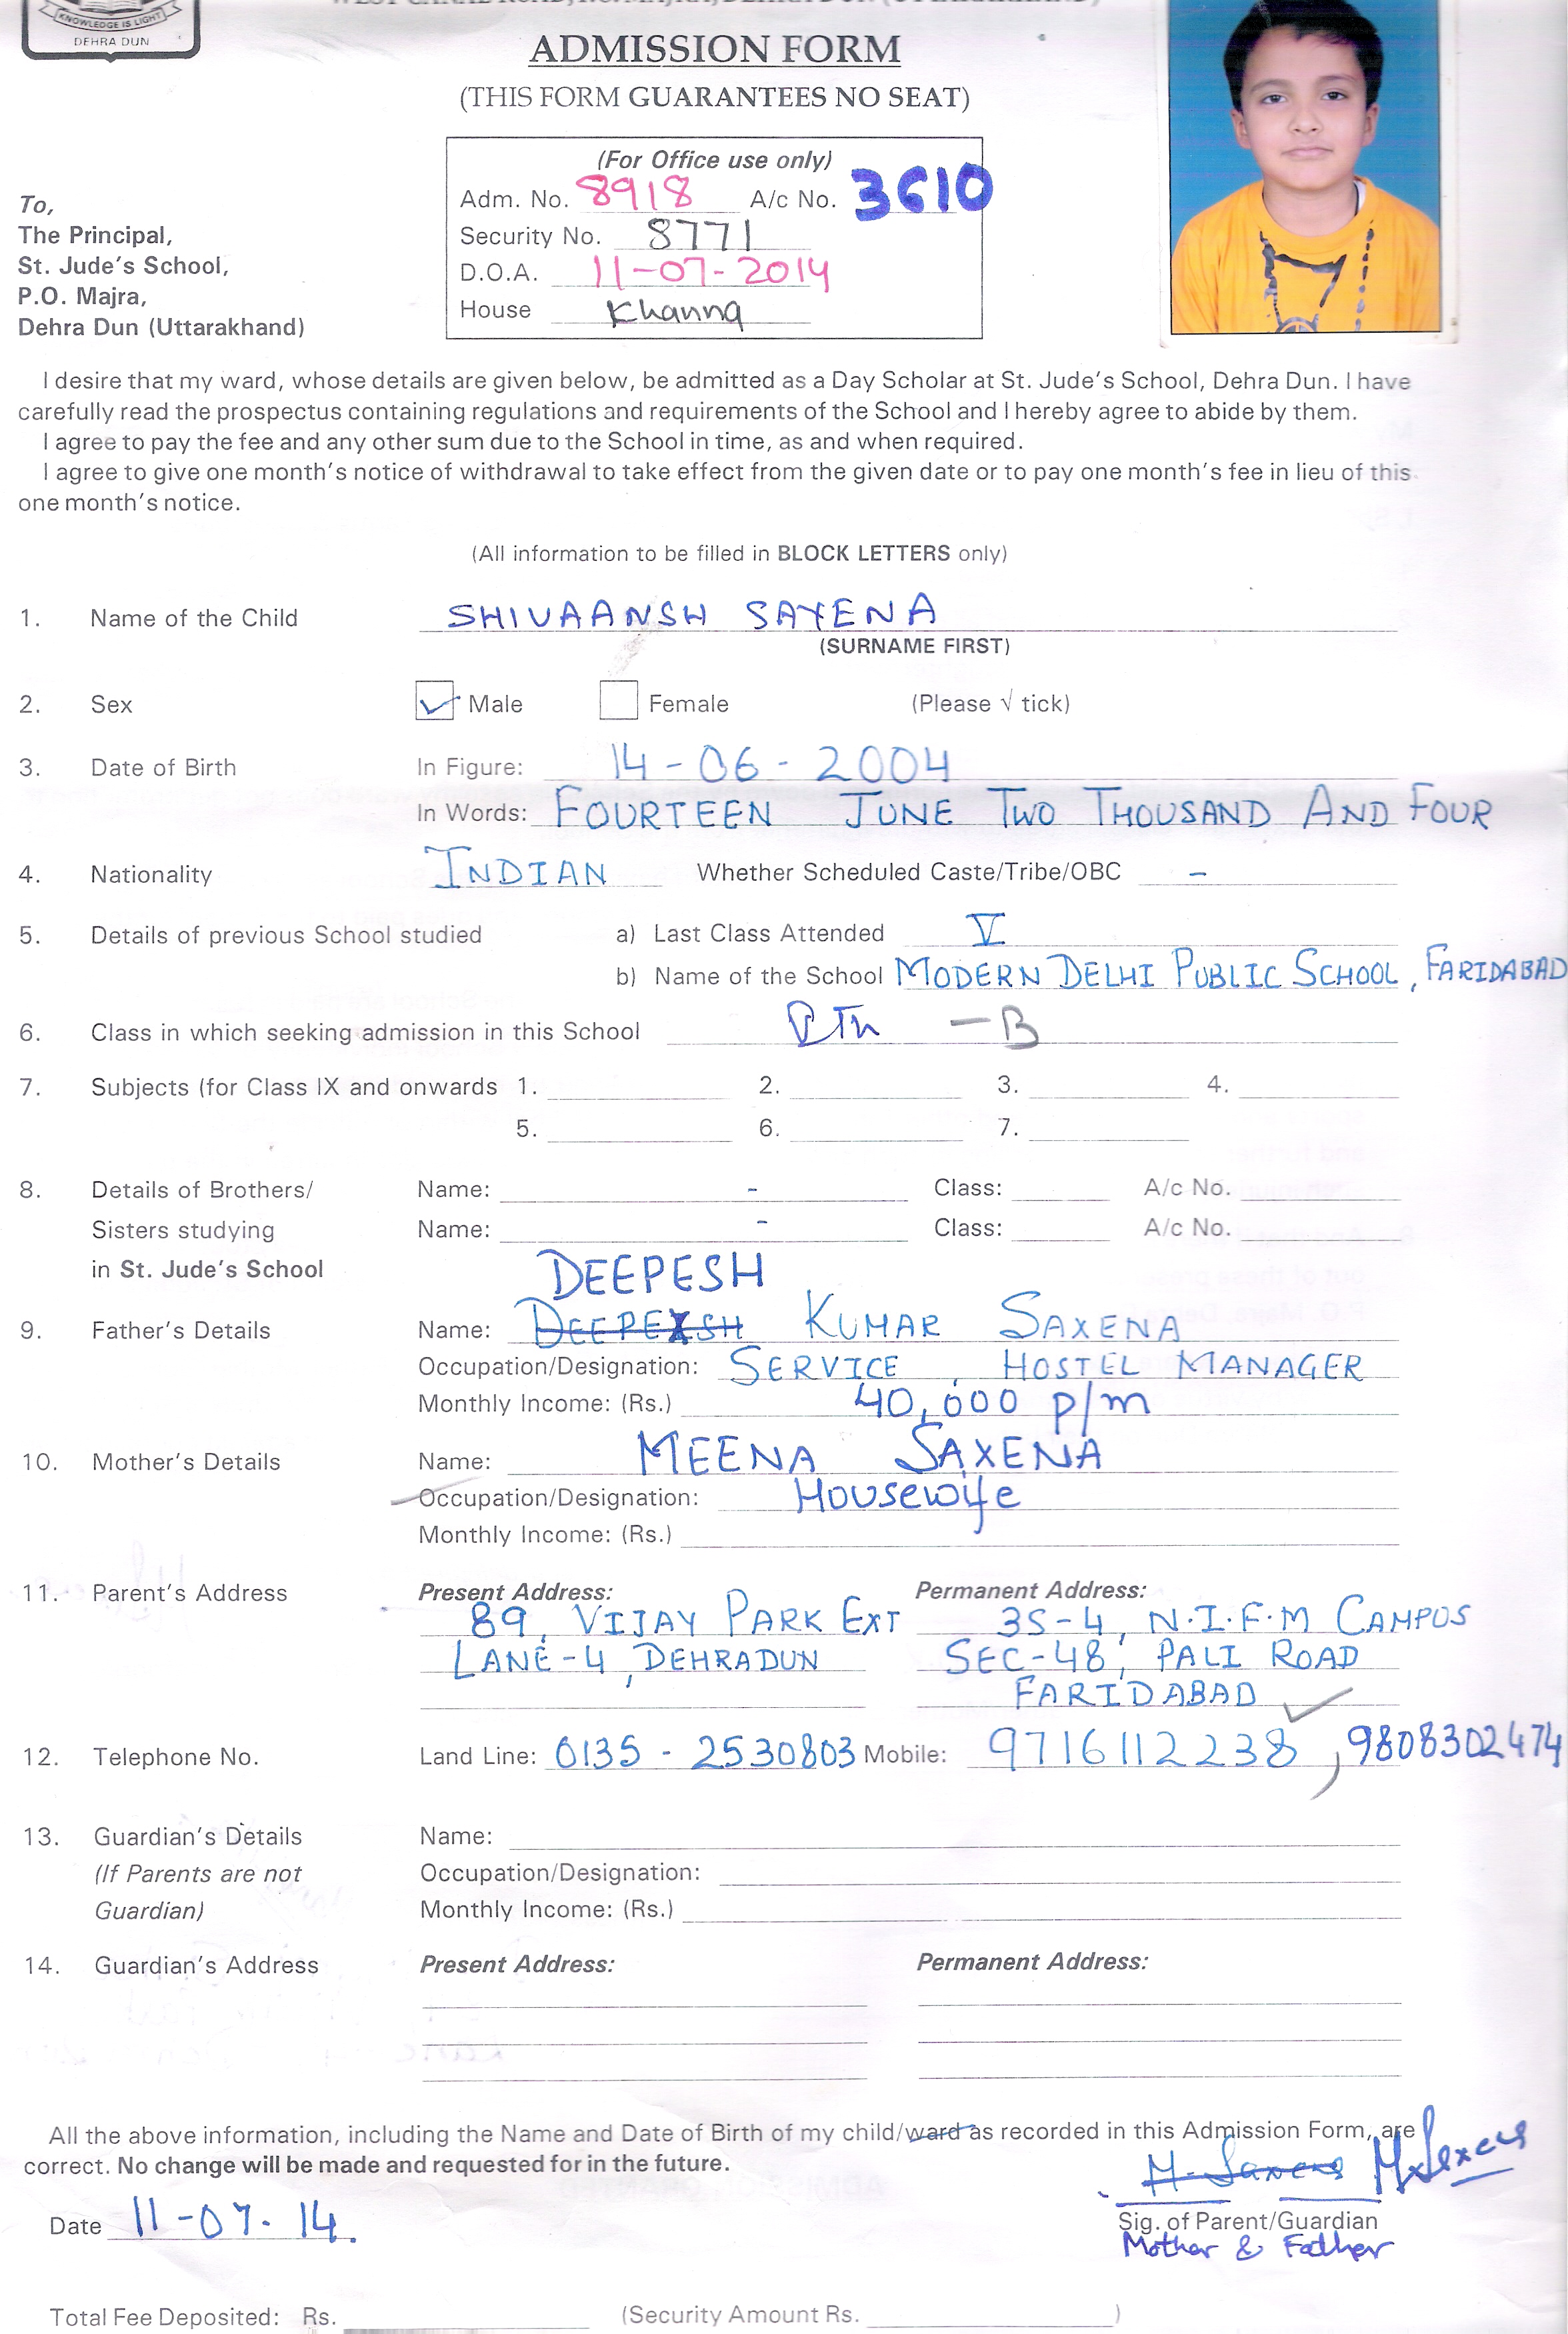 KNOWLEDGE IS LIGHT
DEHRA DUN
ADMISSION FORM
(THIS FORM GUARANTEES NO SEAT)
(For Office use only)
Adm. No. 8918 A/c No. 3610
Security No. 8771
D.O.A. 11-07-2014
House Khanna
To,
The Principal,
St. Jude's School,
P.O. Majra,
Dehra Dun (Uttarakhand)
I desire that my ward, whose details are given below, be admitted as a Day Scholar at St. Jude's School, Dehra Dun. I have
carefully read the prospectus containing regulations and requirements of the School and I hereby agree to abide by them.
I agree to pay the fee and any other sum due to the School in time, as and when required.
I agree to give one month's notice of withdrawal to take effect from the given date or to pay one month's fee in lieu of this
one month's notice.
(All information to be filled in BLOCK LETTERS only)
1. Name of the Child SHIVAANSH SAXENA
(SURNAME FIRST)
2. Sex Male Female (Please √ tick)
3. Date of Birth In Figure: 14-06-2004
In Words: FOURTEEN JUNE TWO THOUSAND AND FOUR
4. Nationality INDIAN Whether Scheduled Caste/Tribe/OBC -
5. Details of previous School studied a) Last Class Attended V
b) Name of the School MODERN DELHI PUBLIC SCHOOL, FARIDABAD
6. Class in which seeking admission in this School - B
7. Subjects (for Class IX and onwards 1. 2. 3. 4.
5. 6. 7.
8. Details of Brothers/ Name: - Class: A/c No.
Sisters studying Name: - Class: A/c No.
in St. Jude's School
DEEPESH
9. Father's Details Name: KUMAR SAXENA
Occupation/Designation: SERVICE, HOSTEL MANAGER
Monthly Income: (Rs.) 40,000 p/m
10. Mother's Details Name: MEENA SAXENA
Occupation/Designation: Housewife
Monthly Income: (Rs.)
11. Parent's Address Present Address: Permanent Address:
89, VIJAY PARK EXT 3S-4, N.I.F.M CAMPUS
LANE-4, DEHRADUN SEC-48, PALI ROAD
FARIDABAD
12. Telephone No. Land Line: 0135-2530803 Mobile: 9716112238, 9808302474
13. Guardian's Details Name:
(If Parents are not Occupation/Designation:
Guardian) Monthly Income: (Rs.)
14. Guardian's Address Present Address: Permanent Address:
All the above information, including the Name and Date of Birth of my child/ward as recorded in this Admission Form, are
correct. No change will be made and requested for in the future.
M. Saxena MSaxena
Date 11-07-14. Sig. of Parent/Guardian
Mother & Father
Total Fee Deposited: Rs. (Security Amount Rs. )